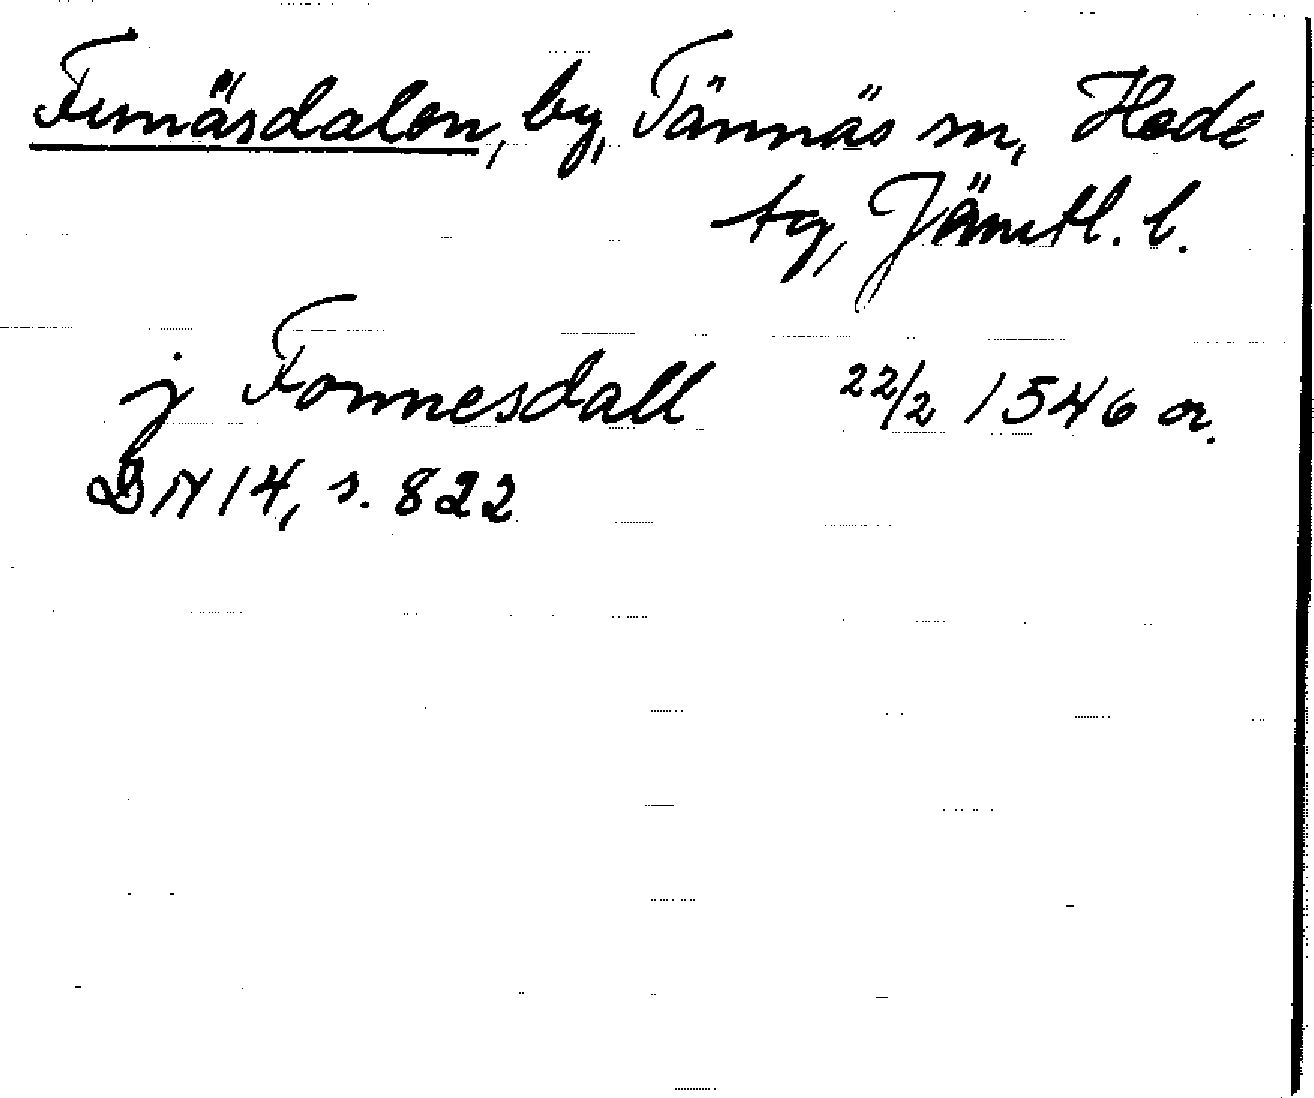 Funäsdalen, by, Tännäs sn, Hede
tg, Jämtl. l.
j Fonnesdall 22/2 1546 or.
DN 14, s. 822